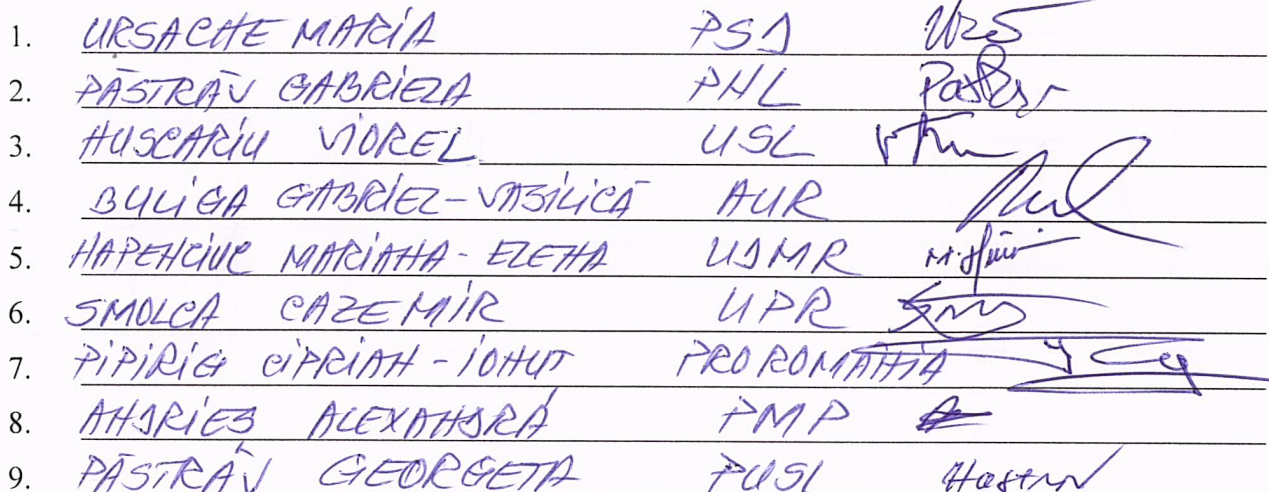 1. URSACHE MARIA PSD
2. PĂSTRĂV GABRIELA PNL
3. HUSCARIU VIOREL USL
4. BULIGA GABRIEL-VASILICĂ AUR
5. HAPENCIUC MARIANA-ELENA UDMR
6. SMOLCA CAZEMIR UPR
7. PIPIRIG CIPRIAN-IONUT PRO ROMANIA
8. ANDRIEȘ ALEXANDRA PMP
9. PĂSTRĂV GEORGETA PUSL